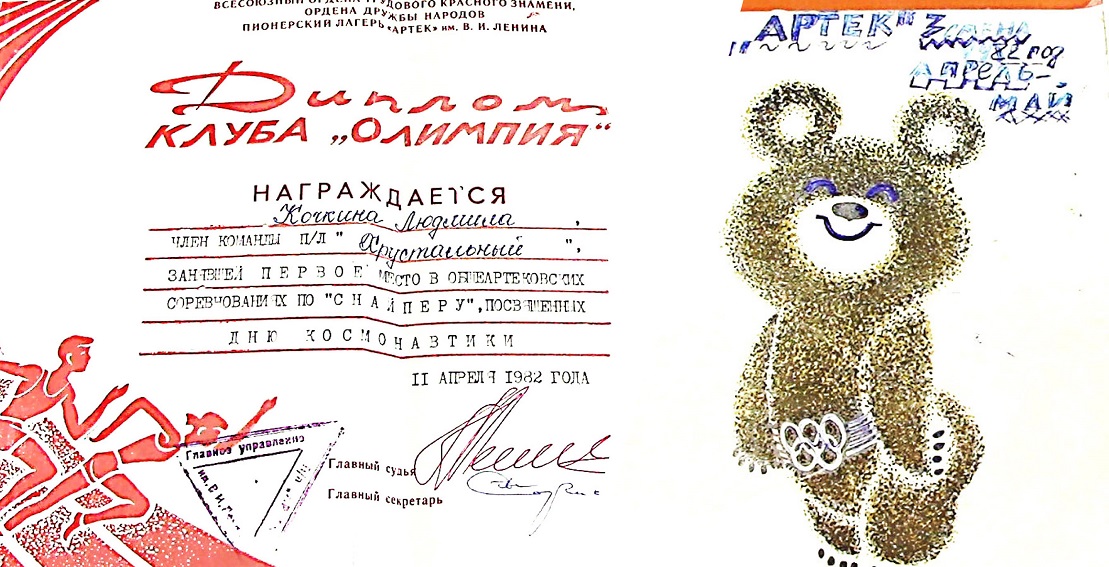 ВСЕСОЮЗНЫЙ ОРДЕНА ТРУДОВОГО КРАСНОГО ЗНАМЕНИ,
ОРДЕНА ДРУЖБЫ НАРОДОВ
ПИОНЕРСКИЙ ЛАГЕРЬ „АРТЕК" им. В. И. ЛЕНИНА
Диплом
КЛУБА „ОЛИМПИЯ"
НАГРАЖДАЕТСЯ
Кочкина Людмила,
ЧЛЕН КОМАНДЫ П/Л "Хрустальный",
ЗАНЯВШЕЙ ПЕРВОЕ МЕСТО В ОБЩЕАРТЕКОВСКИХ
СОРЕВНОВАНИЯХ ПО "СНАЙПЕРУ", ПОСВЯЩЕННЫХ
ДНЮ КОСМОНАВТИКИ
II АПРЕЛЯ 1982 ГОЛА
Главное управление
им. В. И.
Главный судья
Главный секретарь
„АРТЕК" 3 смена
1982 год
АПРЕЛЬ-
МАЙ